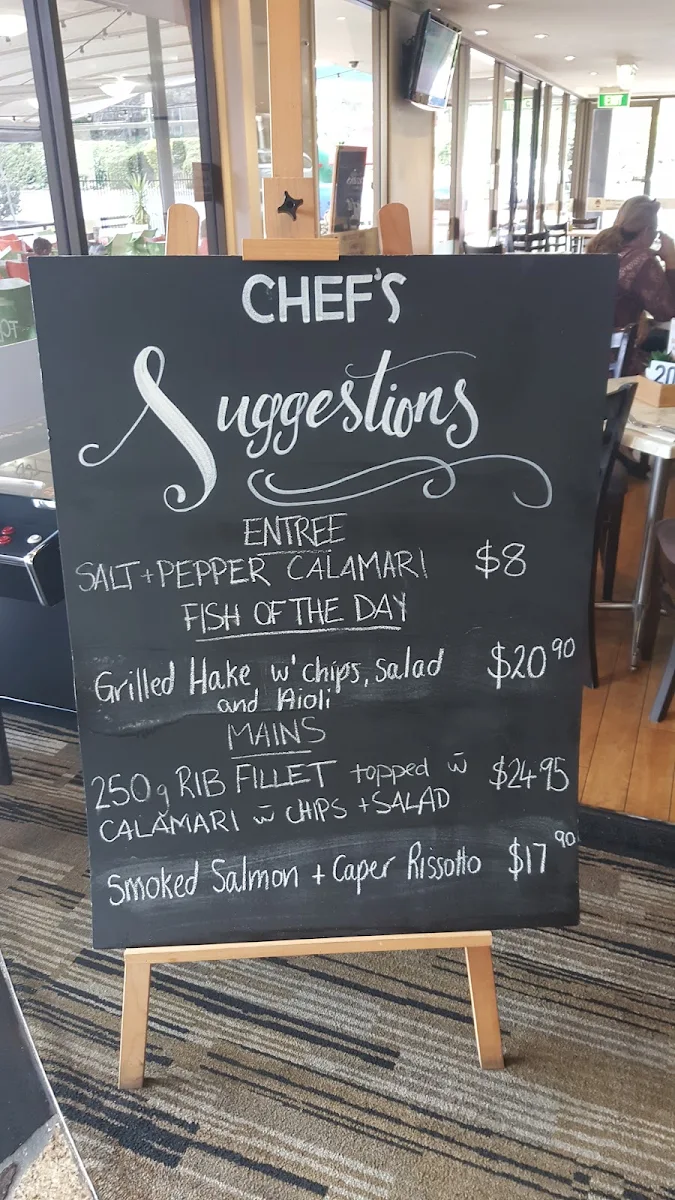 EXIT
CHEF'S
Suggestions
ENTREE
SALT + PEPPER CALAMARI $8
FISH OF THE DAY
Grilled Hake w' chips, salad $20 90
and Aioli
MAINS
250g RIB FILLET topped w̄ $24.95
CALAMARI w̄ CHIPS + SALAD
Smoked Salmon + Caper Rissotto $17 90
20